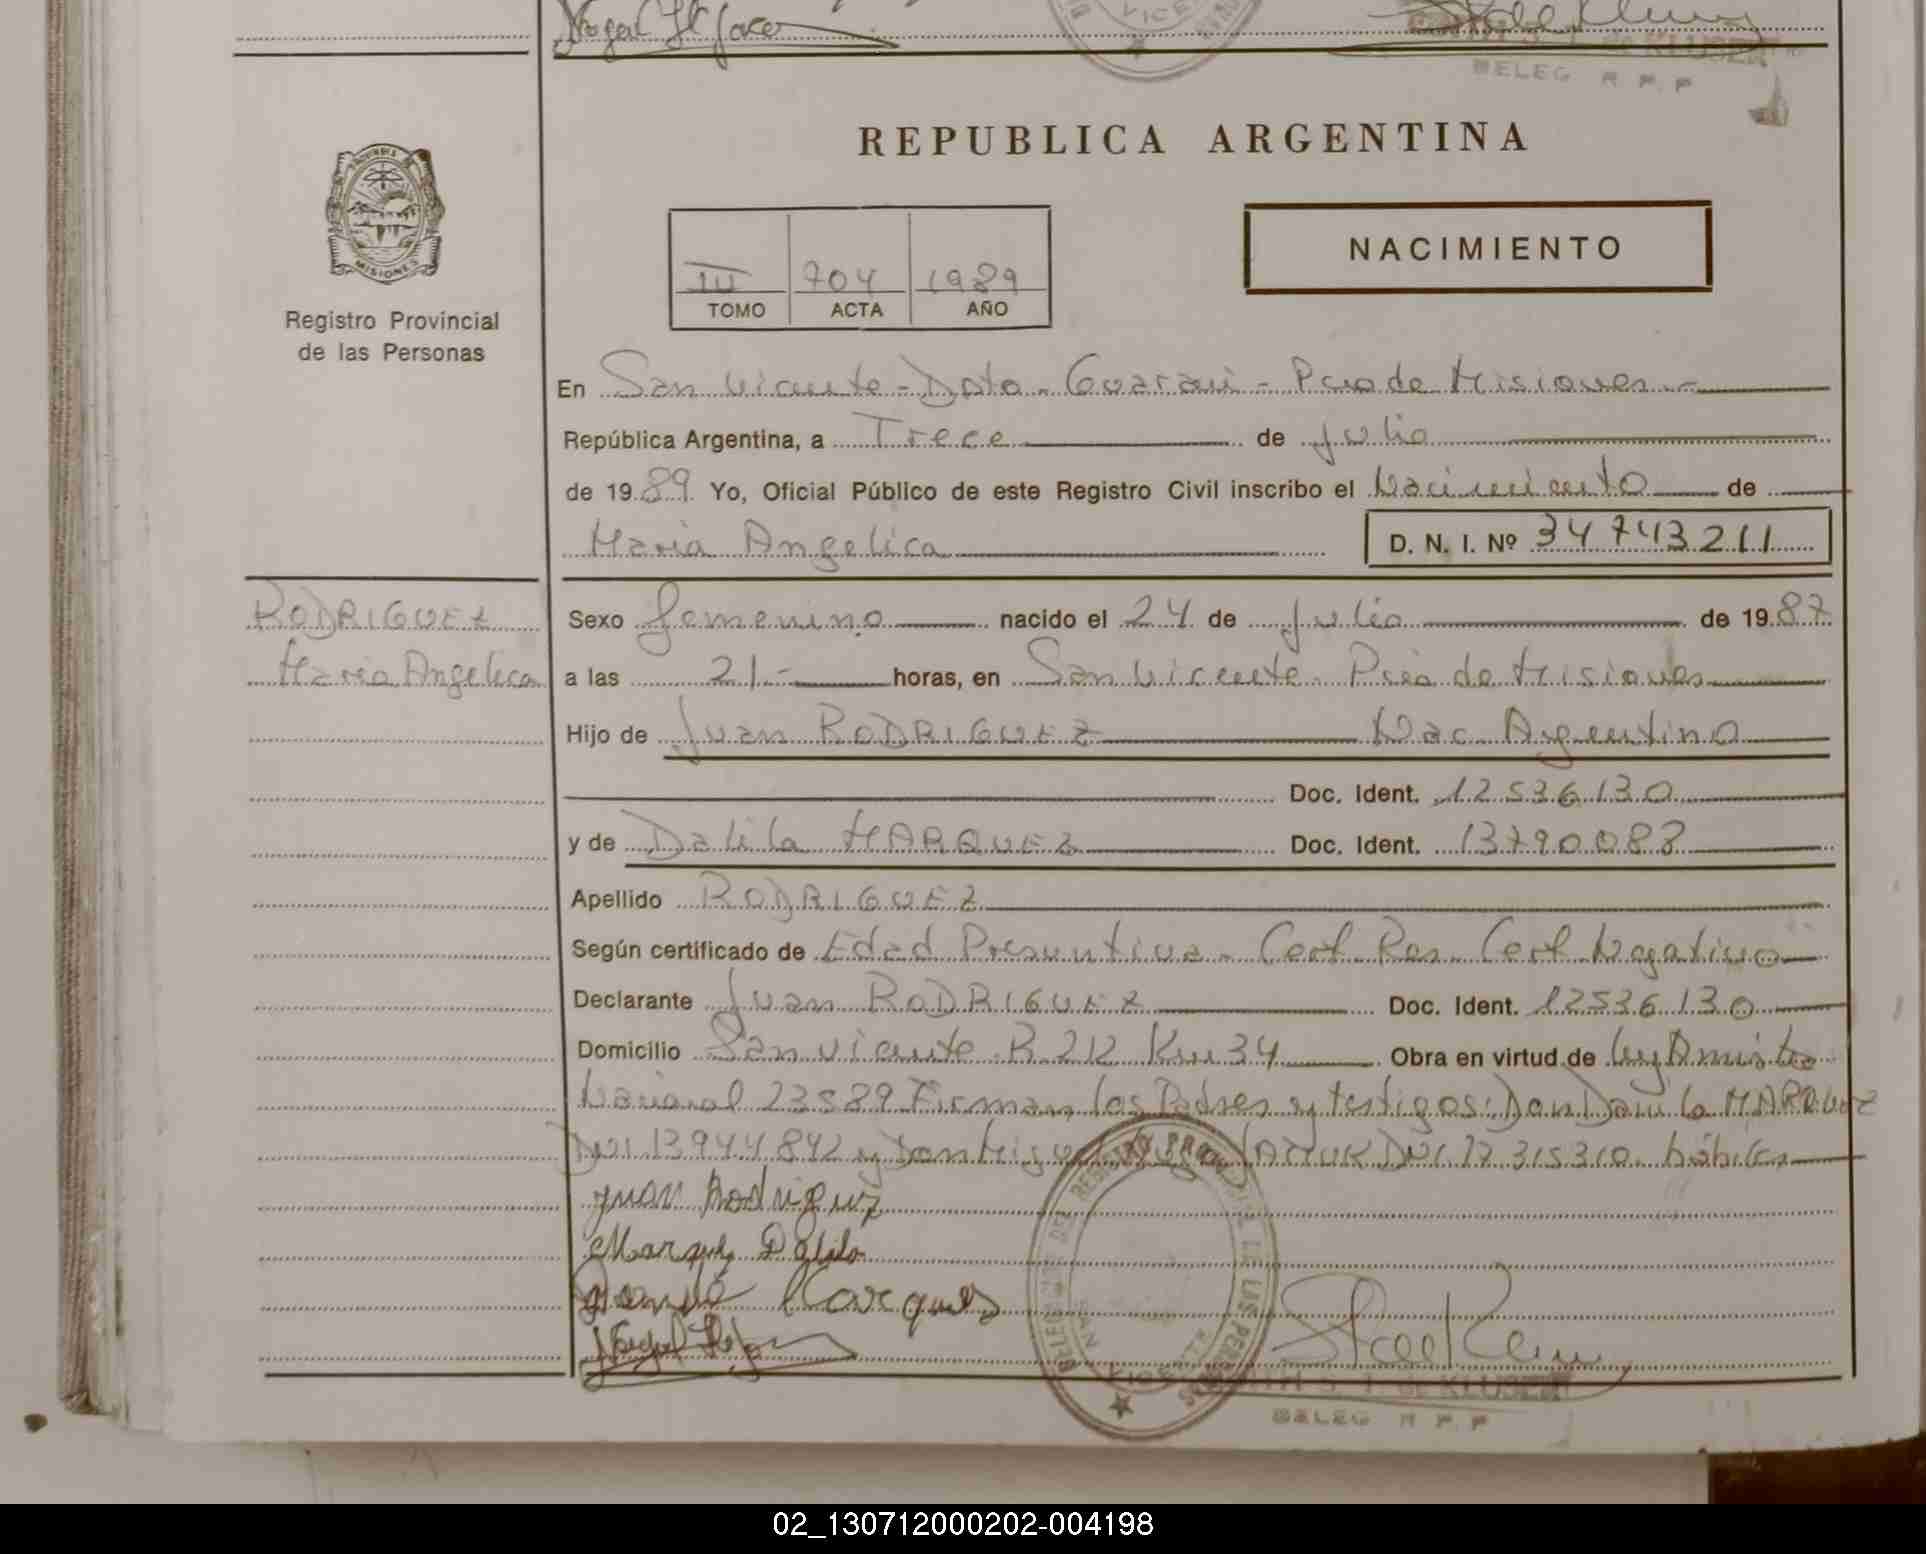 BELEG R. P. P
REPUBLICA ARGENTINA
PROVINCIA DE
MISIONES
Registro Provincial
de las Personas
NACIMIENTO
III 704 1989
TOMO ACTA AÑO
En San Vicente - Dpto - Guarani - Pcia de Misiones -
República Argentina, a Trece de Julio
de 1989 Yo, Oficial Público de este Registro Civil inscribo el Nacimiento de
Maria Angelica D. N. I. Nº 34743211
RODRIGUEZ
Maria Angelica
Sexo femenino nacido el 24 de Julio de 1987
a las 21.- horas, en San Vicente Pcia de Misiones
Hijo de Juan RODRIGUEZ Nac Argentino
Doc. Ident. 12536130
y de Dalila MARQUEZ Doc. Ident. 13790088
Apellido RODRIGUEZ
Según certificado de Edad Presuntiva - Cert. Res. Cert. Negativo
Declarante Juan RODRIGUEZ Doc. Ident. 12536130
Domicilio San Vicente R 212 Km 34 Obra en virtud de Ley Amnistia
Nacional 23589 Firman los Padres y testigos: Don MARQUEZ
DNI 13944842 y Don Miguel DNI 17315310 hábiles
Juan Rodriguez
Marquez Dalila
Marques
DEL REGISTRO PROVINCIAL DE LAS PERSONAS
SAN VICENTE
S. T. de KLUSEN
BELEG R. P. P
02_130712000202-004198